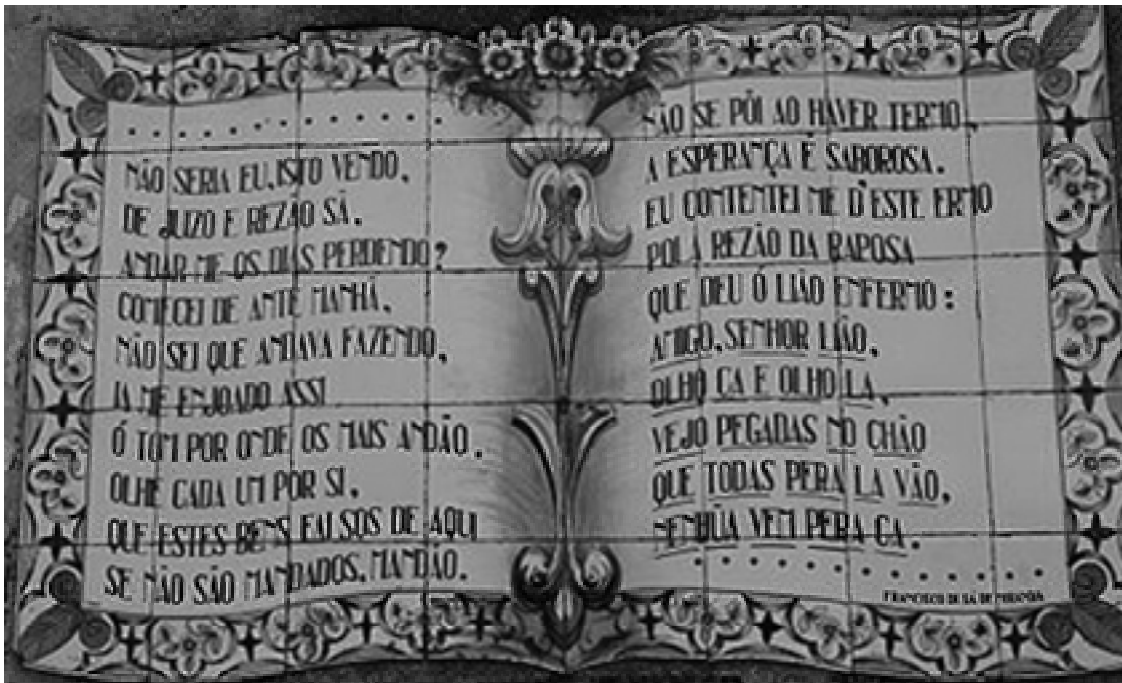 . . . . . . . . . . . . .
NÃO SERIA EU, ISTO VENDO,
DE JUIZO E REZÃO SÃ,
ANDAR-ME OS DIAS PERDENDO?
COMECEI DE ANTE MANHÃ,
NÃO SEI QUE ANDAVA FAZENDO,
JA ME ENJOADO ASSI
Ó TOM POR ONDE OS MAIS ANDÃO.
OLHE CADA UM POR SI,
QUE ESTES BENS FALSOS DE AQUI
SE NÃO SÃO MANDADOS, MANDÃO.
NÃO SE PÕI AO HAVER TERMO,
A ESPERANÇA É SABOROSA.
EU CONTENTEI ME D'ESTE ERMO
POLA REZÃO DA RAPOSA
QUE DEU Ó LIÃO ENFERMO:
AMIGO, SENHOR LIÃO,
OLHO CA E OLHO LA,
VEJO PEGADAS NO CHÃO
QUE TODAS PERA LA VÃO,
NENHŨA VEM PERA CA.
. . . . . . . . . . . . .
FRANCISCO DE SÁ DE MIRANDA